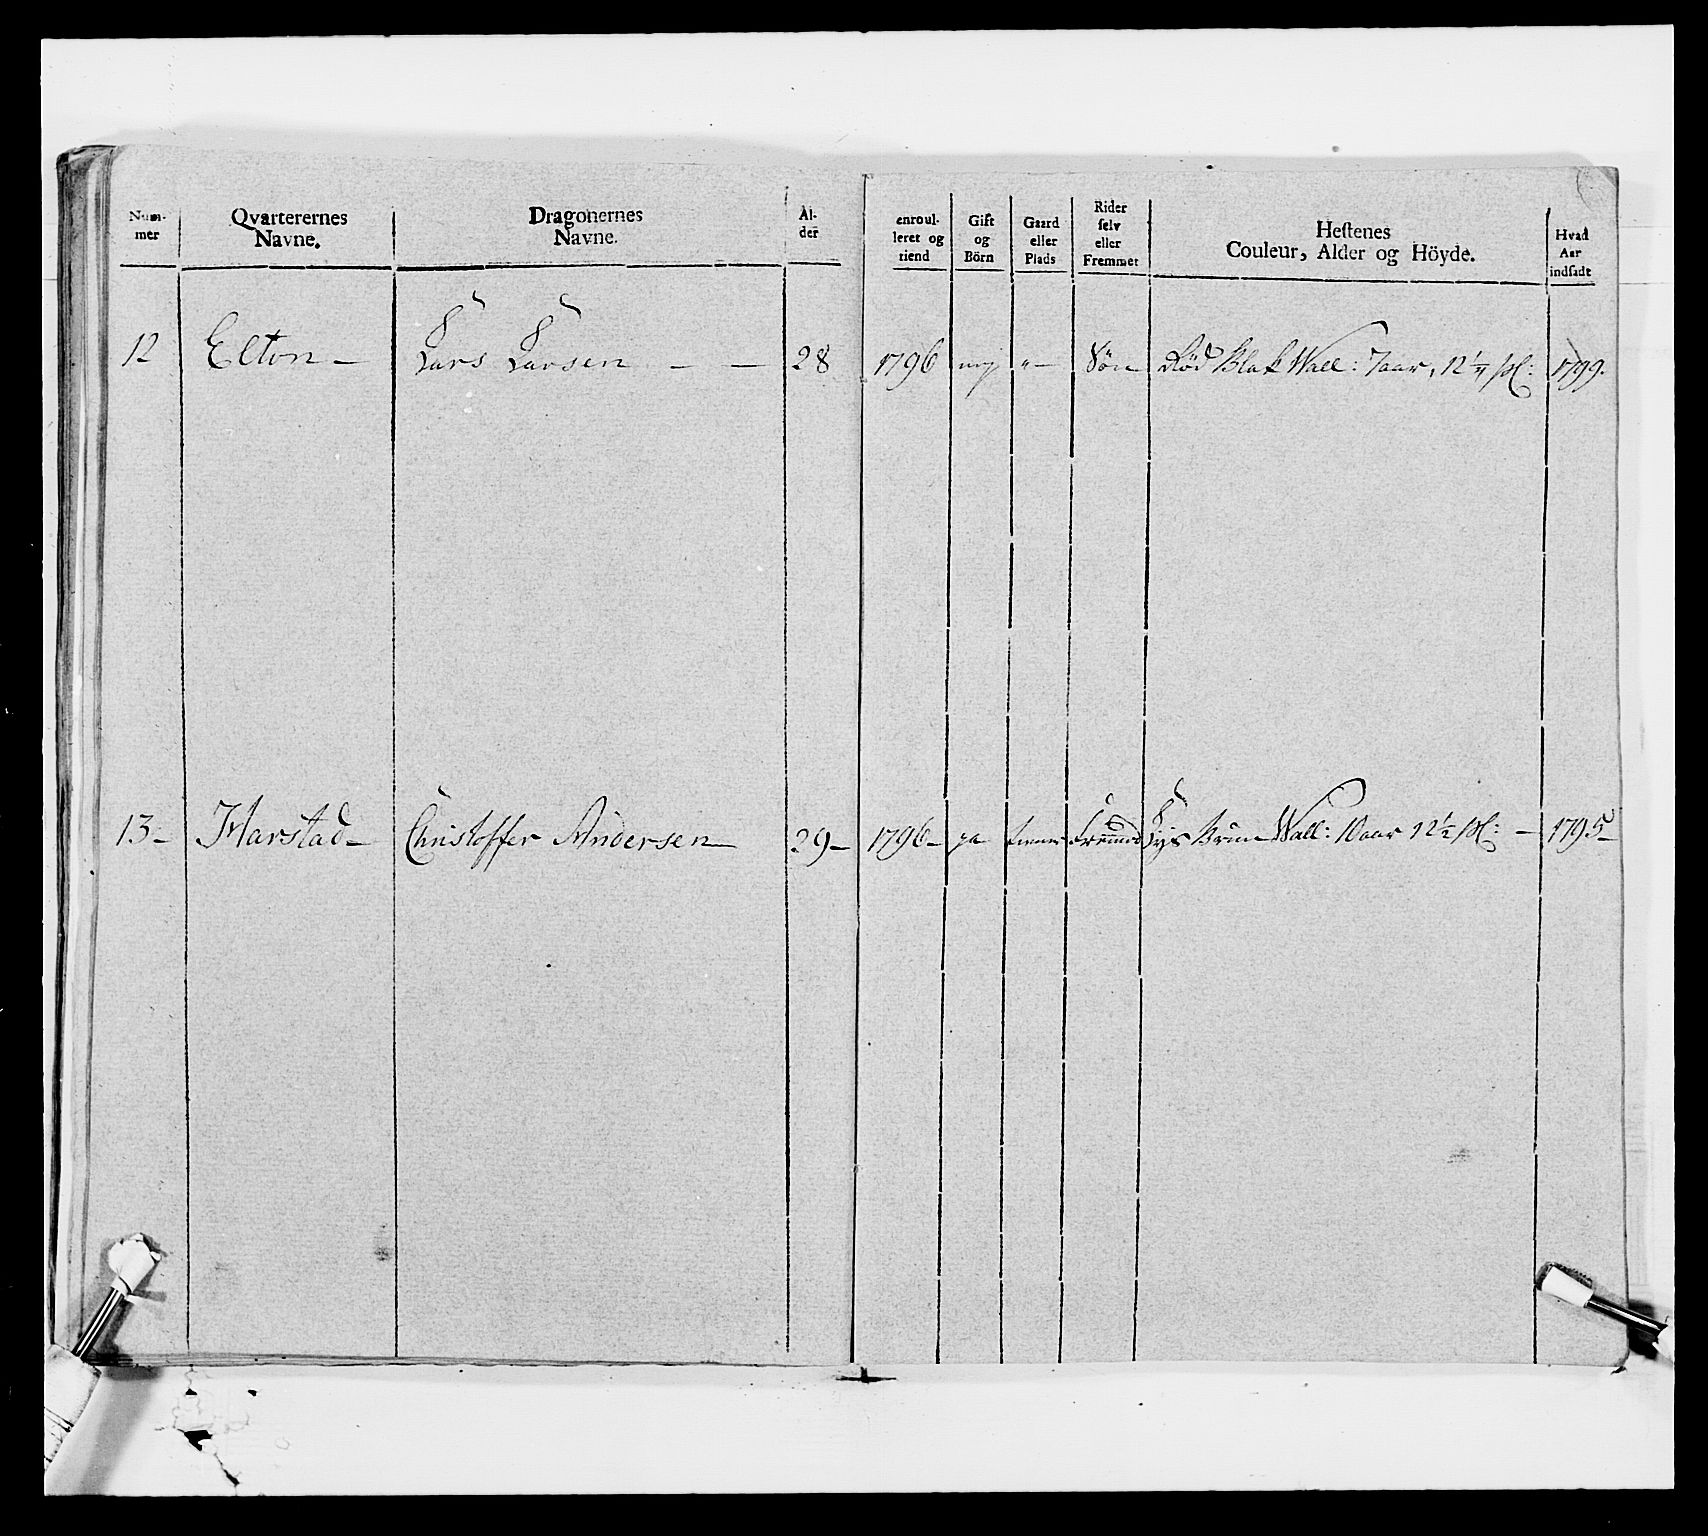 Num-
mer
Qvarterernes
Navne.
Dragonernes
Navne.
Al-
der
enroul-
leret og
tiend
Gift
og
Börn
Gaard
eller
Plads
Rider
selv
eller
Fremmet
Hestenes
Couleur, Alder og Höyde.
Hvad
Aar
indsadt
12 Elton - Lars Larsen - - 28 1796 Søn Rød Blak Wall: 7aar, 12 1/4 1799.
13- Harstad- Christoffer Andersen- 29- 1796- Fremmed Lys Brun Wall: 10aar 12 1/2 - 1795-